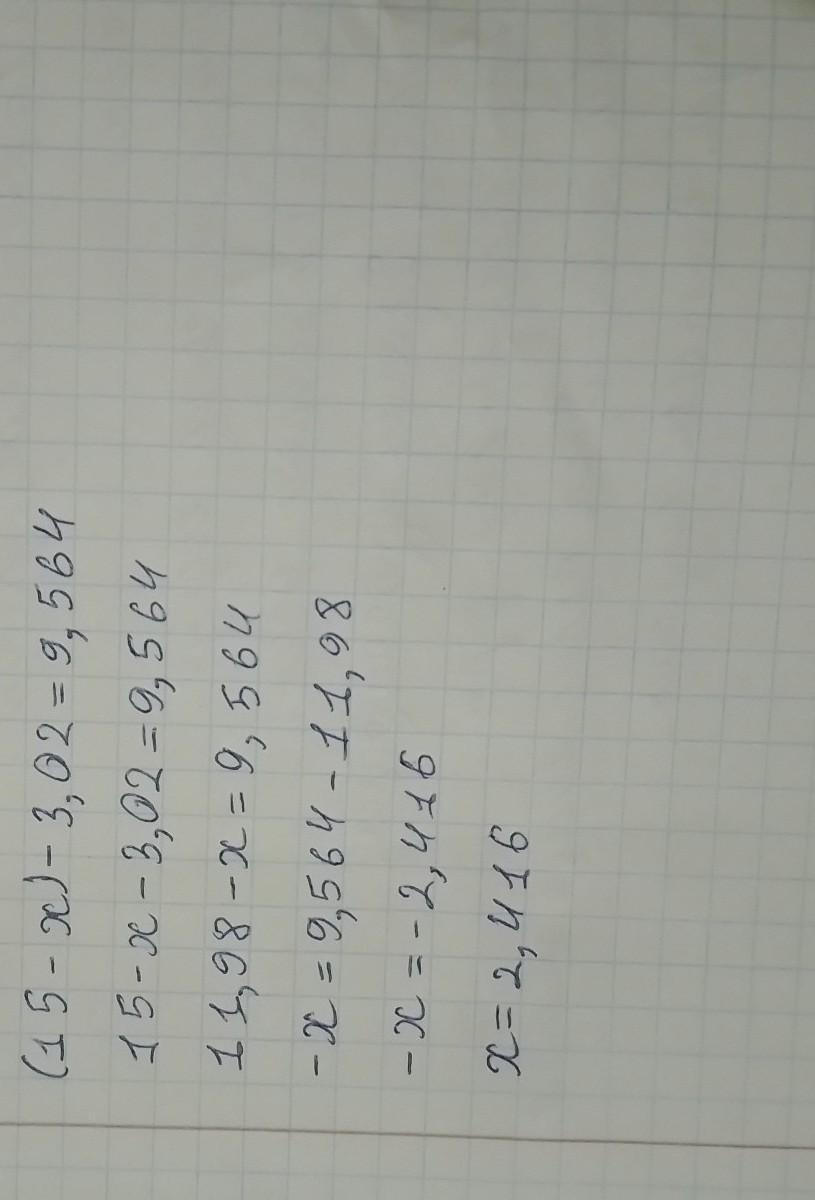 (15-x)-3,02=9,564
15-x-3,02=9,564
11,98-x=9,564
-x=9,564-11,98
-x=-2,416
x=2,416